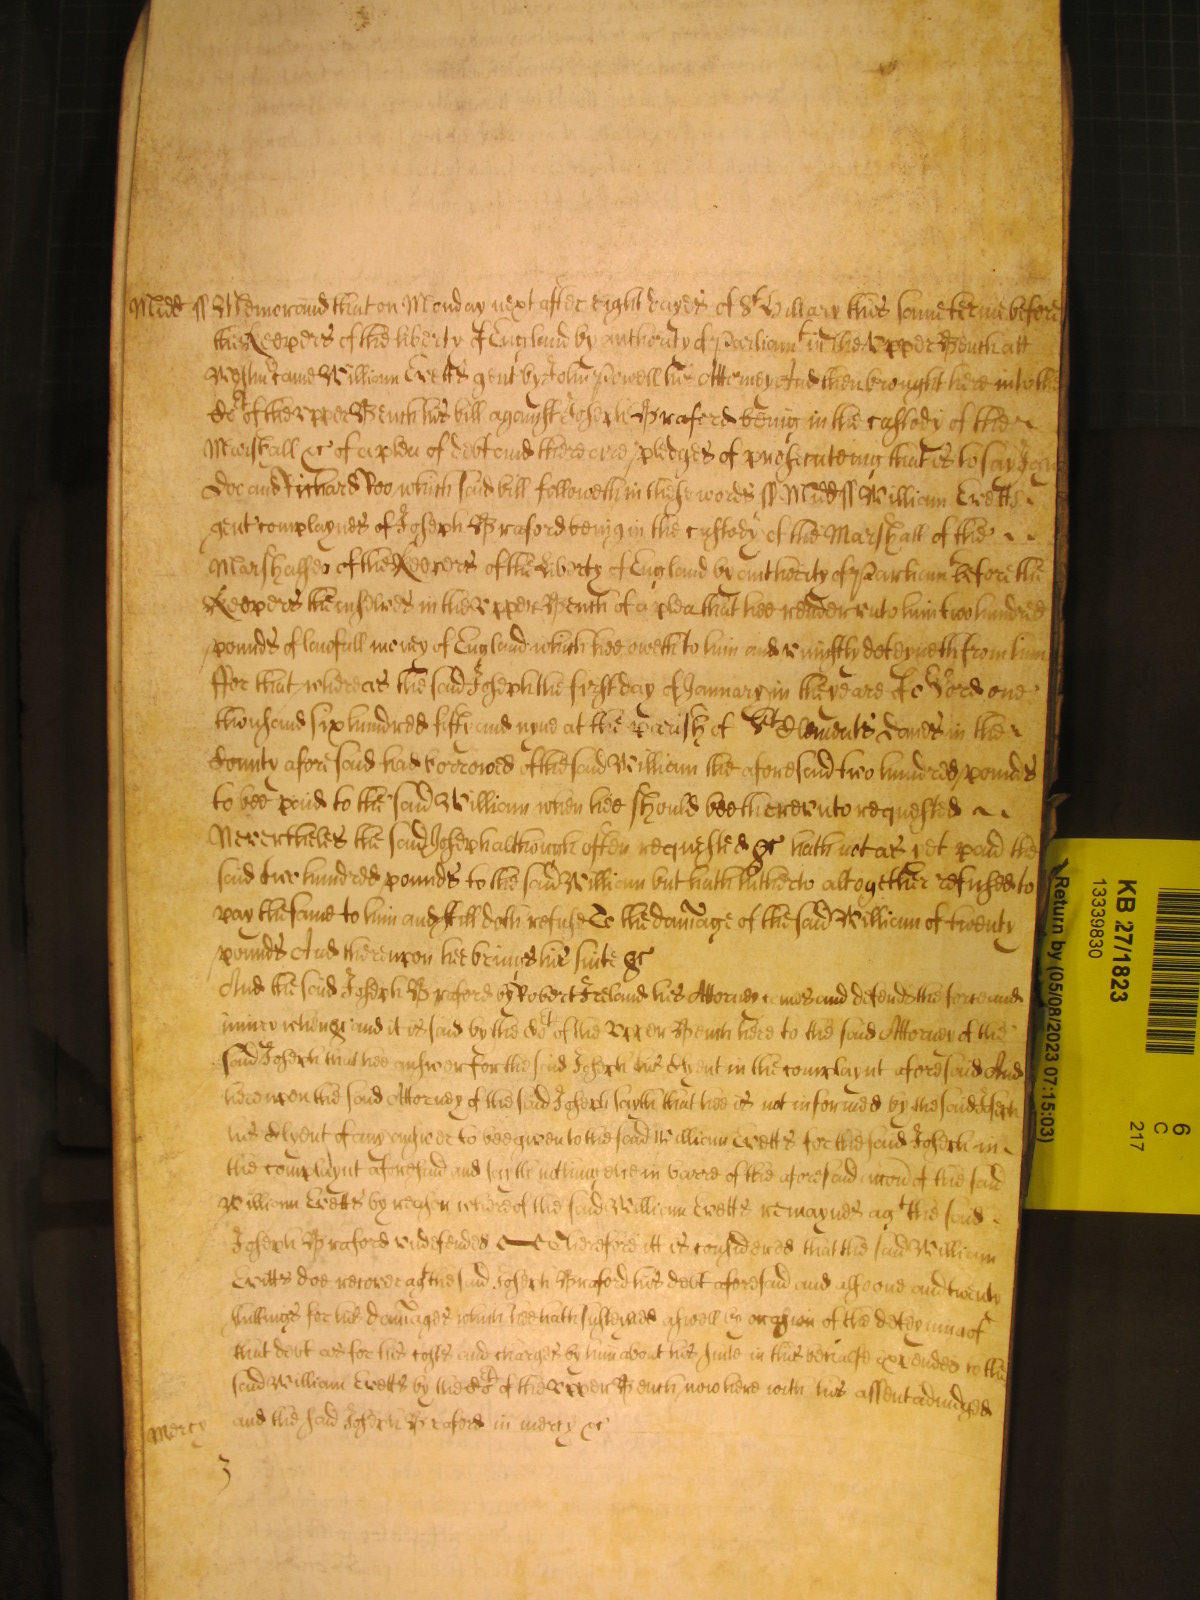 Midd ss Memorand that on Monday next after eight dayes of St Hillary this same terme before
the Keepers of the liberty of England by authority of Parliamt in the Upper Bench att
Westmr came William Cretts gent by John Powell his Attorney And then brought here into the
Cort of the Upper Bench his bill against Joseph Braford being in the custody of the
Marshall &c of a plea of debt and there are pledges of prosecuteing that is to say John
Doe and Richard Roo which said bill followeth in these words ss Midd ss William Cretts
gent complaynes of Joseph Braford being in the custody of the Marshall of the
Marshalsea of the Keepers of the Liberty of England by authority of Parliamt before the
Keepers themselves in the Upper Bench of a plea that hee render unto him two hundred
pounds of lawfull money of England which hee oweth to him and uniustly deteyneth from him
ffor that whereas the said Joseph the first day of January in the yeare of or Lord one
thousand six hundred fifty and nyne at the parish of St Clements Danes in the
County aforesaid had borrowed of the said William the aforesaid two hundred pounds
to bee paid to the said William when hee should bee thereunto requested
Neverthelesse the said Joseph although often requested &c hath not as yet paid the
said two hundred pounds to the said William but hath hitherto altogether refused to
pay the same to him and still doth refuse To the damage of the said William of twenty
pounds And thereupon hee brings his suite &c
And the said Joseph Braford by Robert Ireland his Attorney comes and defends the force and
iniury when &c and it is said by the Cort of the Upper Bench here to the said Attorney of the
said Joseph that hee answer for the said Joseph his Clyent in the complaynt aforesaid And
hereupon the said Attorney of the said Joseph sayth that hee is not informed by the said Joseph
his Clyent of any answer to bee given to the said William Cretts for the said Joseph in
the complaynt aforesaid and sayth nothing else in barre of the aforesaid accon of the said
William Cretts by reason whereof the said William Cretts remaynes agt the said
Joseph Braford undefended Therefore itt is considered that the said William
Cretts doe recover agt the said Joseph Braford his debt aforesaid and alsoe one and twenty
shillings for his damages which hee hath susteyned aswell by occasion of the deteyning of
that debt as for his costs and charges by him about his suite in this behalfe expended to the
said William Cretts by the Cort of the Upper Bench now here with his assent adiudged
mercy and the said Joseph Braford in mercy &c
Return by (05/08/2023 07:15:03)
13339830
KB 27/1823
6
C
217